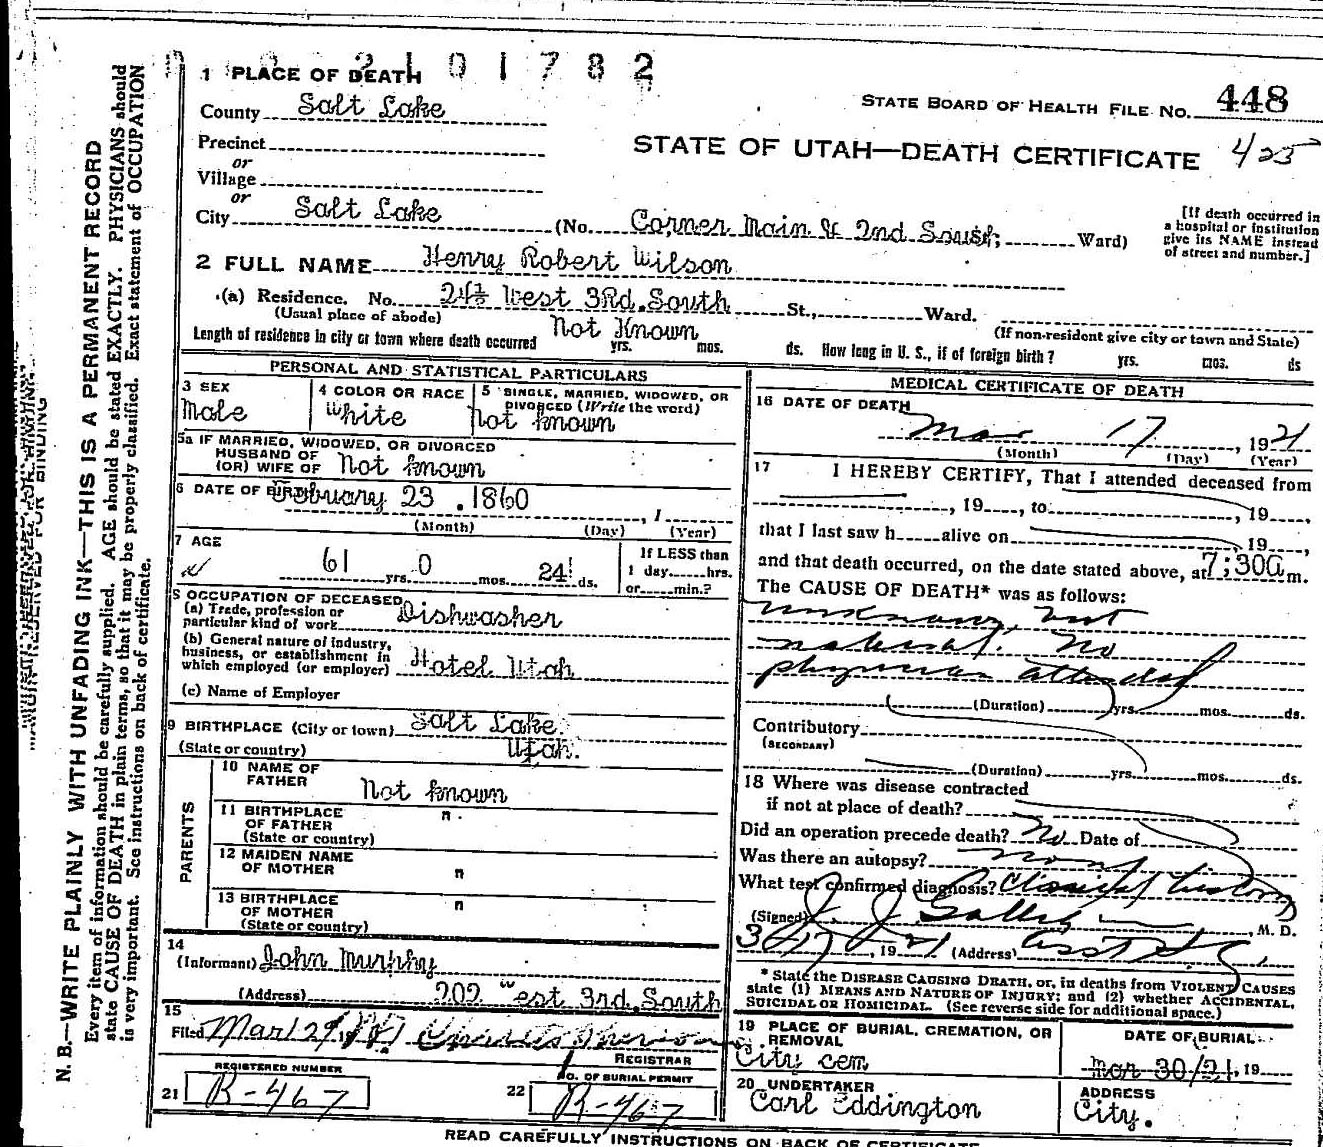 2101782
1 PLACE OF DEATH
STATE BOARD OF HEALTH FILE NO. 448
County Salt Lake
STATE OF UTAH—DEATH CERTIFICATE 425
Precinct
or
Village
or
City Salt Lake (No. Corner Main & 2nd South; Ward)
[If death occurred in a hospital or institution give its NAME instead of street and number.]
2 FULL NAME Henry Robert Wilson
(a) Residence. No. 24½ West 3Rd. South St., Ward.
(Usual place of abode)
(If non-resident give city or town and State)
Length of residence in city or town where death occurred Not Known yrs. mos. ds. How long in U. S., if of foreign birth? yrs. mos. ds
PERSONAL AND STATISTICAL PARTICULARS
3 SEX
Male
4 COLOR OR RACE
White
5 SINGLE, MARRIED, WIDOWED, OR DIVORCED (Write the word)
Not known
5a IF MARRIED, WIDOWED, OR DIVORCED
HUSBAND OF
(OR) WIFE OF Not known
6 DATE OF BIRTH February 23 .1860 , 1
(Month) (Day) (Year)
7 AGE
61 yrs. 0 mos. 24 ds.
If LESS than
1 day hrs.
or min.?
8 OCCUPATION OF DECEASED
(a) Trade, profession or
particular kind of work Dishwasher
(b) General nature of industry,
business, or establishment in
which employed (or employer) Hotel Utah
(c) Name of Employer
9 BIRTHPLACE (City or town) Salt Lake
(State or country) Utah.
PARENTS
10 NAME OF
FATHER Not known
11 BIRTHPLACE
OF FATHER "
(State or country)
12 MAIDEN NAME
OF MOTHER "
13 BIRTHPLACE
OF MOTHER "
(State or country)
14
(Informant) John Murphy
(Address) 202 West 3rd. South
15
Filed Mar 29
REGISTRAR
REGISTERED NUMBER
21 R-467
NO. OF BURIAL PERMIT
22 R-467
MEDICAL CERTIFICATE OF DEATH
16 DATE OF DEATH
Mar 17 , 1921
(Month) (Day) (Year)
17 I HEREBY CERTIFY, That I attended deceased from
, 19 , to , 19 ,
that I last saw h alive on , 19 ,
and that death occurred, on the date stated above, at 7;30a m.
The CAUSE OF DEATH* was as follows:
unknown, but
natural. No
physician attended
(Duration) yrs. mos. ds.
Contributory
(SECONDARY)
(Duration) yrs. mos. ds.
18 Where was disease contracted
if not at place of death?
Did an operation precede death? No Date of
Was there an autopsy?
What test confirmed diagnosis?
(Signed) J. J. , M. D.
3-17, 1921 (Address) Asst
* State the DISEASE CAUSING DEATH, or, in deaths from VIOLENT CAUSES
state (1) MEANS AND NATURE OF INJURY; and (2) whether ACCIDENTAL,
SUICIDAL OR HOMICIDAL. (See reverse side for additional space.)
19 PLACE OF BURIAL, CREMATION, OR
REMOVAL
City cem
DATE OF BURIAL
Mar 30/21, 19
20 UNDERTAKER
Carl Eddington
ADDRESS
City.
READ CAREFULLY INSTRUCTIONS ON BACK OF CERTIFICATE
N. B.—WRITE PLAINLY WITH UNFADING INK—THIS IS A PERMANENT RECORD
Every item of information should be carefully supplied. AGE should be stated EXACTLY. PHYSICIANS should
state CAUSE OF DEATH in plain terms, so that it may be properly classified. Exact statement of OCCUPATION
is very important. See instructions on back of certificate.